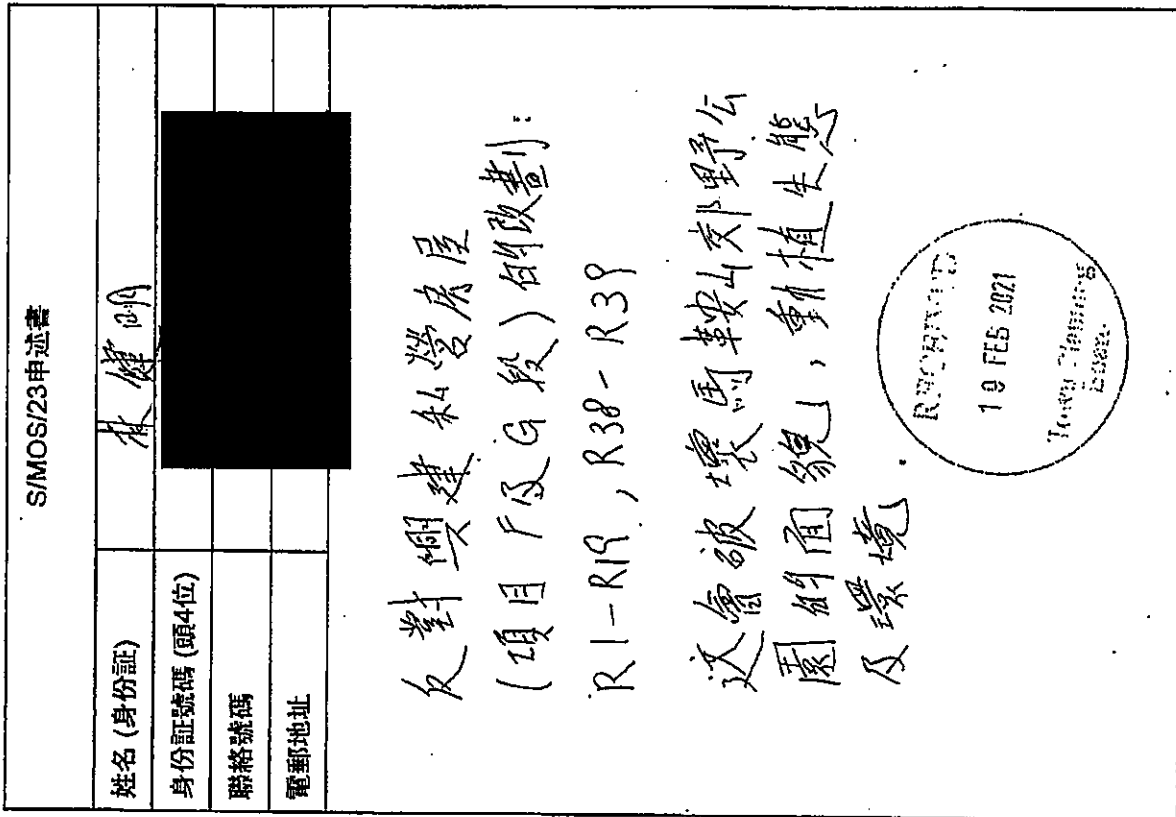 S/MOS/23申述書
姓名 (身份証) 林健明
身份証號碼 (頭4位)
聯絡號碼
電郵地址
反對興建私營房屋
(項目F及G段)的改劃:
R1-R19, R38-R39
這會破壞馬鞍山郊野公
園的面貌, 動植生態
及環境。
RECEIVED
19 FEB 2021
Town Planning
Board